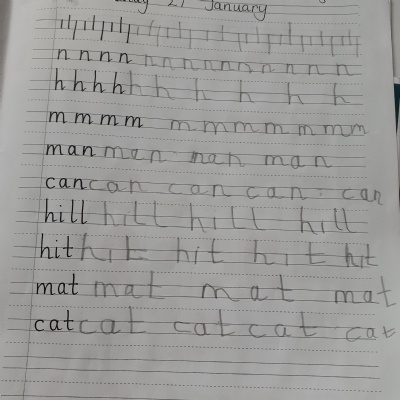 January
n n n n n n n n n n n n n n
h h h h h h h h h h
m m m m m m m m m m m
man man man man
can can can can can
hill hill hill hill
hit hit hit hit hit
mat mat mat mat
cat cat cat cat cat